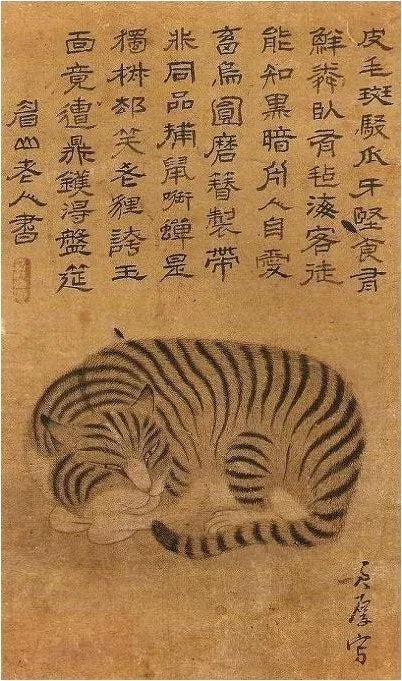 皮毛斑駁爪牙堅食有
鮮鱗臥有毡海客徒
能知黑暗舟人自愛
畜烏圓磨替製帶
非同品捕鼠啣蟬是
獨權却笑老狸誇玉
面竟遭鼎鑊得盤筵
眉山老人書
厚寫